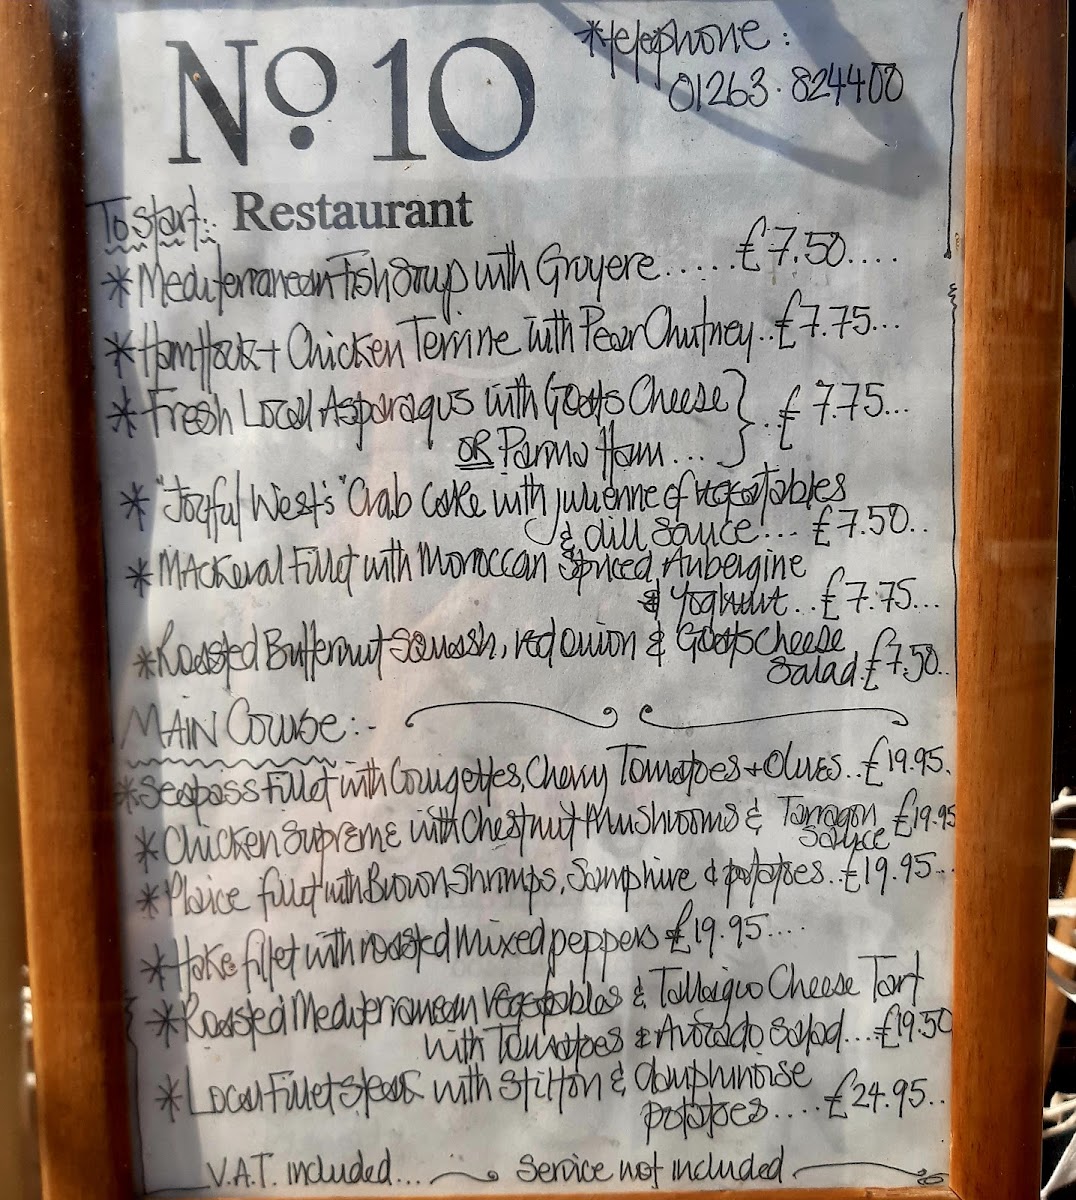 No. 10
*telephone:
01263·824400
To Start:.
Restaurant
*Mediterranean Fish Soup with Gruyere.....£7.50....
*Ham Hock + Chicken Terrine with Pear Chutney..£7.75...
*Fresh Local Asparagus with Goats Cheese
OR Parma Ham... } .£7.75...
*"Joyful West's" Crab Cake with julienne of vegetables
& dill sauce... £7.50..
*Mackeral Fillet with Moroccan Spiced Aubergine
& Yoghurt..£7.75...
*Roasted Butternut Squash, red onion & Goats Cheese
Salad.£7.50..
MAIN Course:-
*Seabass Fillet with Courgettes, Cherry Tomatoes + Olives..£19.95.
*Chicken Supreme with Chestnut Mushrooms & Tarragon £19.95
Sauce
*Plaice fillet with Brown Shrimps, Samphire & potatoes..£19.95...
*Hake fillet with roasted mixed peppers £19.95....
*Roasted Mediterranean Vegetables & Tallegio Cheese Tart
with Tomatoes & Avocado Salad...£19.50
*Local Fillet steak with Stilton & dauphinoise
potatoes....£24.95..
V.A.T. included.... Service not included